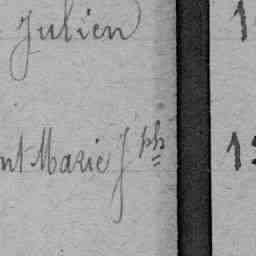 Julien 1
nt Marie Jph 13